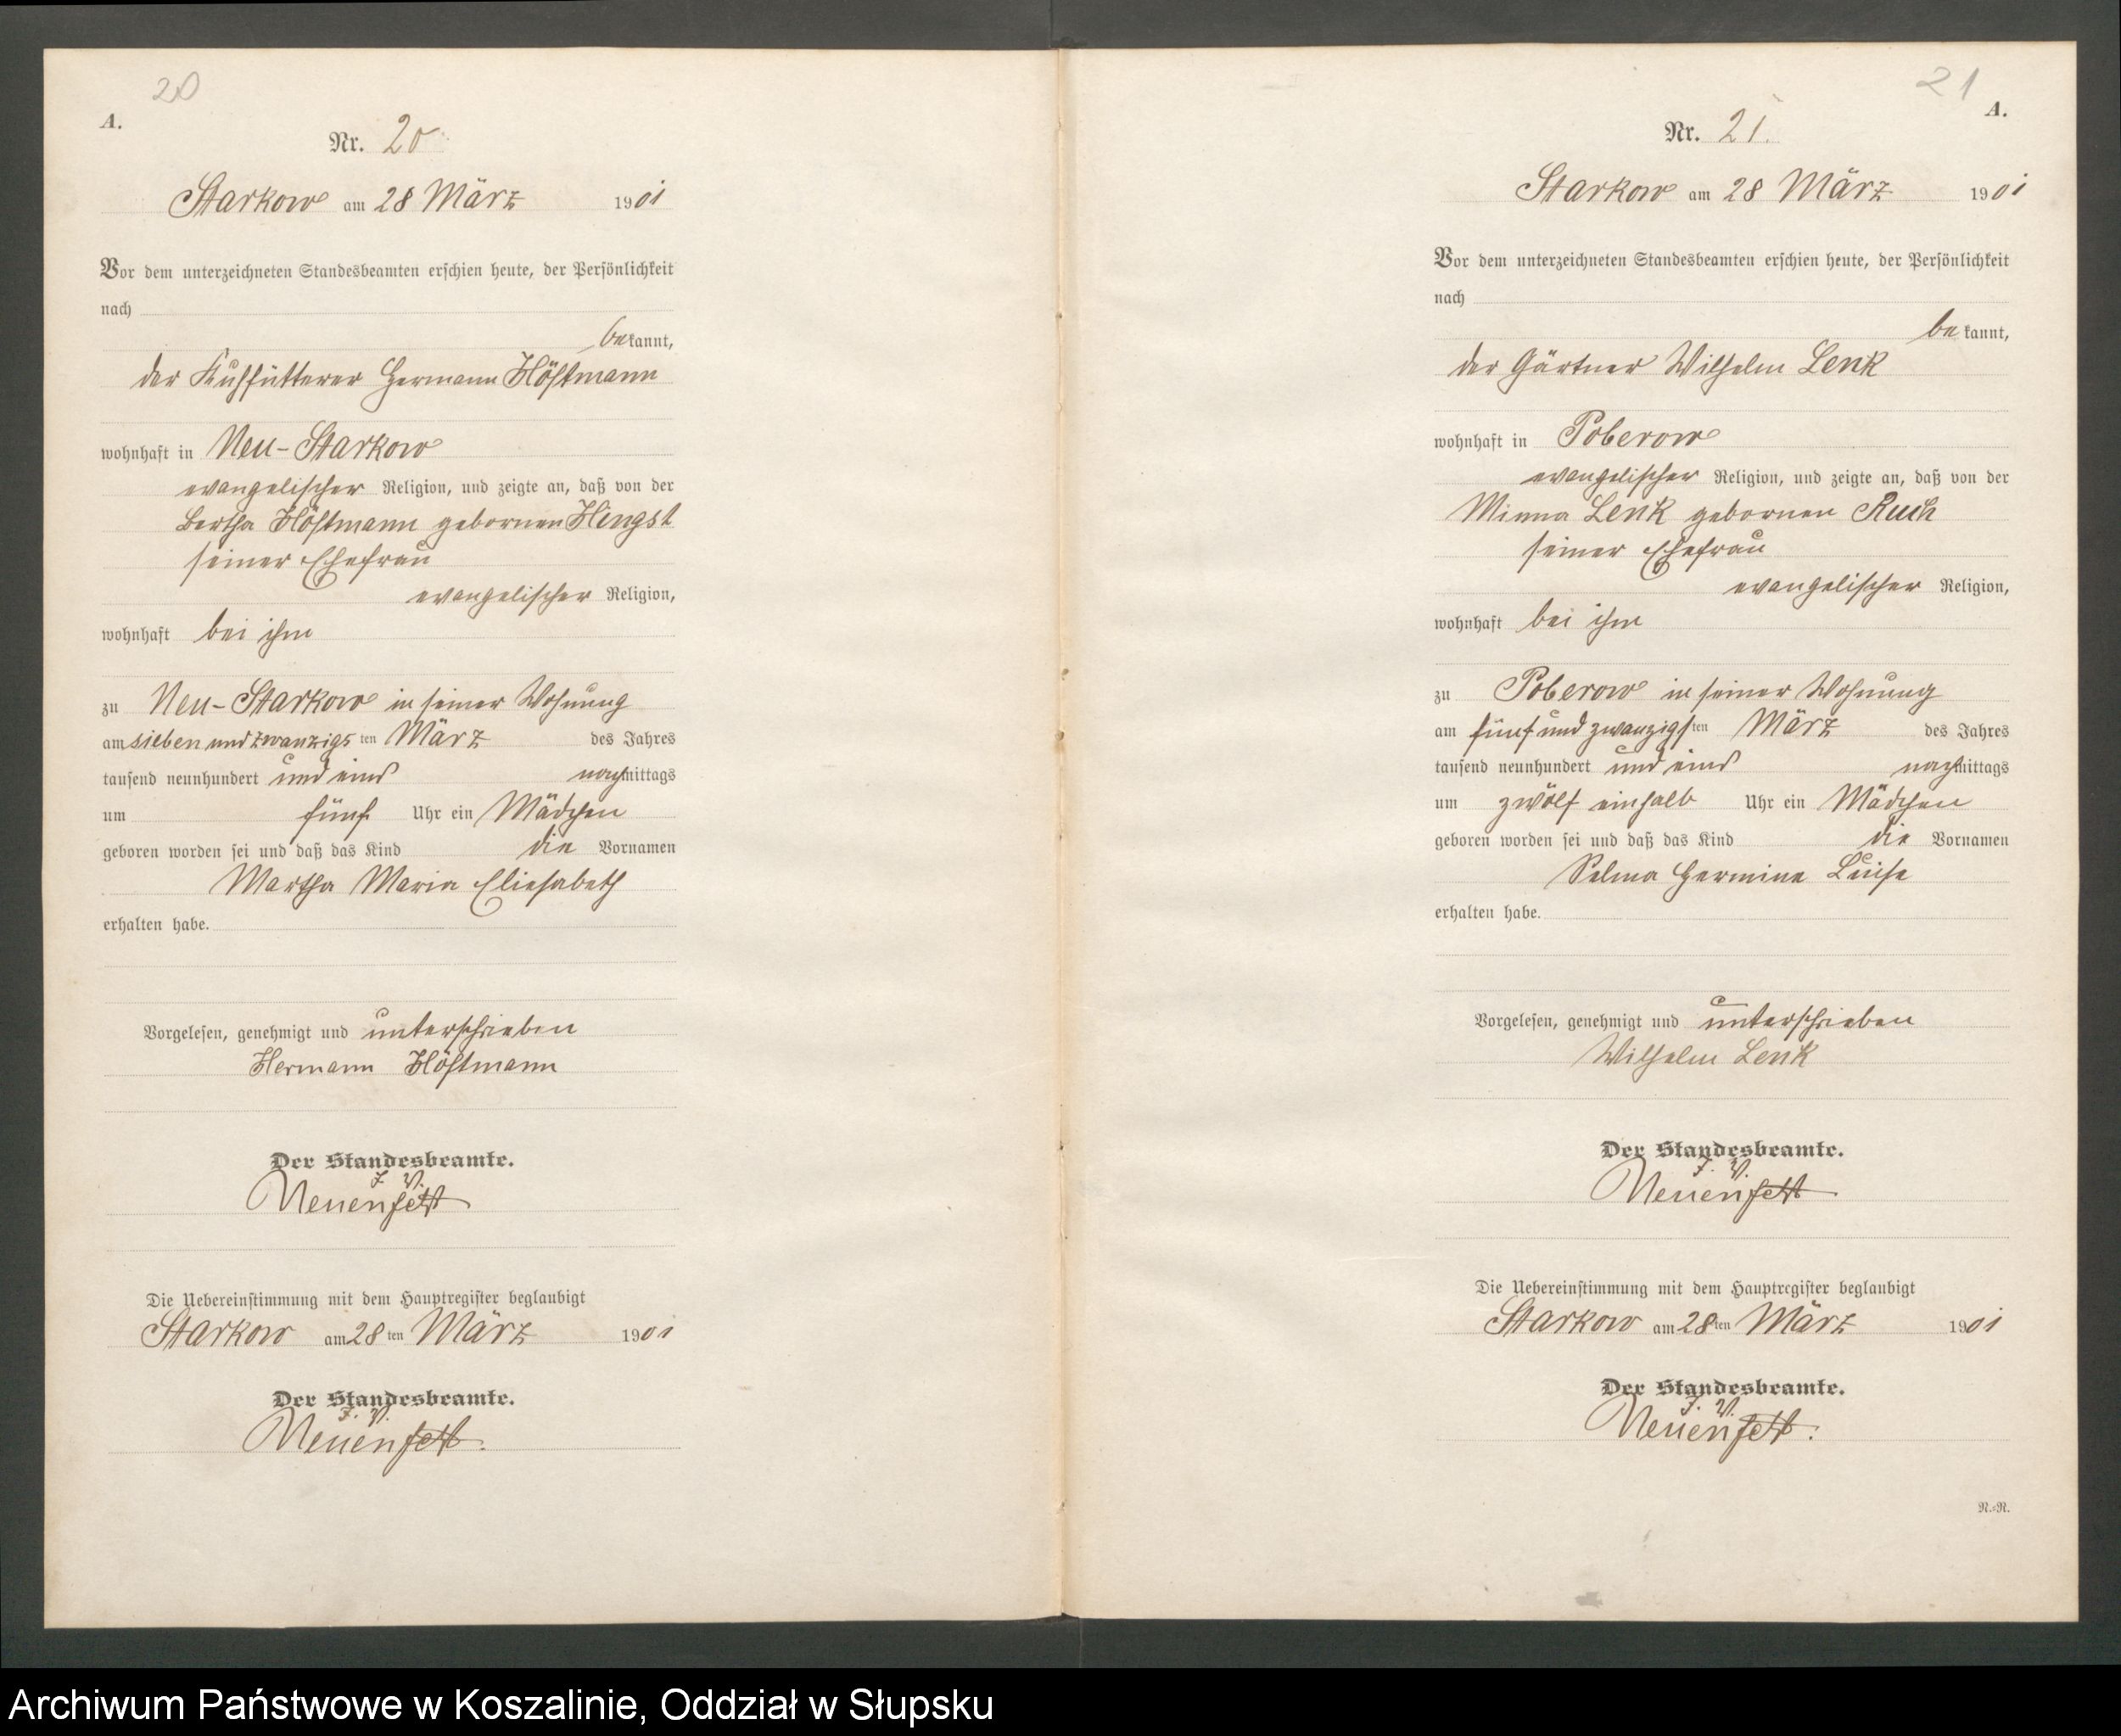 20
A.
Nr. 20
Starkow am 28 März 1901
Vor dem unterzeichneten Standesbeamten erschien heute, der Persönlichkeit
nach
bekannt,
der Kuhfütterer Hermann Höftmann
wohnhaft in Neu-Starkow
evangelischer Religion, und zeigte an, daß von der
Bertha Höftmann gebornen Hingst
seiner Ehefrau
evangelischer Religion,
wohnhaft bei ihm
zu Neu-Starkow in seiner Wohnung
am sieben und zwanzigsten März des Jahres
tausend neunhundert und eins nachmittags
um fünf Uhr ein Mädchen
geboren worden sei und daß das Kind die Vornamen
Martha Maria Eliesabeth
erhalten habe.
Vorgelesen, genehmigt und unterschrieben
Hermann Höftmann
Der Standesbeamte.
J. V.
Die Uebereinstimmung mit dem Hauptregister beglaubigt
Starkow am 28ten März 1901
Der Standesbeamte.
J. V.
21
A.
Nr. 21.
Starkow am 28 März 1901
Vor dem unterzeichneten Standesbeamten erschien heute, der Persönlichkeit
nach
bekannt,
der Gärtner Wilhelm Lenk
wohnhaft in Poberow
evangelischer Religion, und zeigte an, daß von der
Minna Lenk gebornen Ruch
seiner Ehefrau
evangelischer Religion,
wohnhaft bei ihm
zu Poberow in seiner Wohnung
am fünf und zwanzigsten März des Jahres
tausend neunhundert und eins nachmittags
um zwölf einhalb Uhr ein Mädchen
geboren worden sei und daß das Kind die Vornamen
Selma Hermine Luise
erhalten habe.
Vorgelesen, genehmigt und unterschrieben
Wilhelm Lenk
Der Standesbeamte.
J. V.
Die Uebereinstimmung mit dem Hauptregister beglaubigt
Starkow am 28ten März 1901
Der Standesbeamte.
J. V.
R.=R.
Archiwum Państwowe w Koszalinie, Oddział w Słupsku